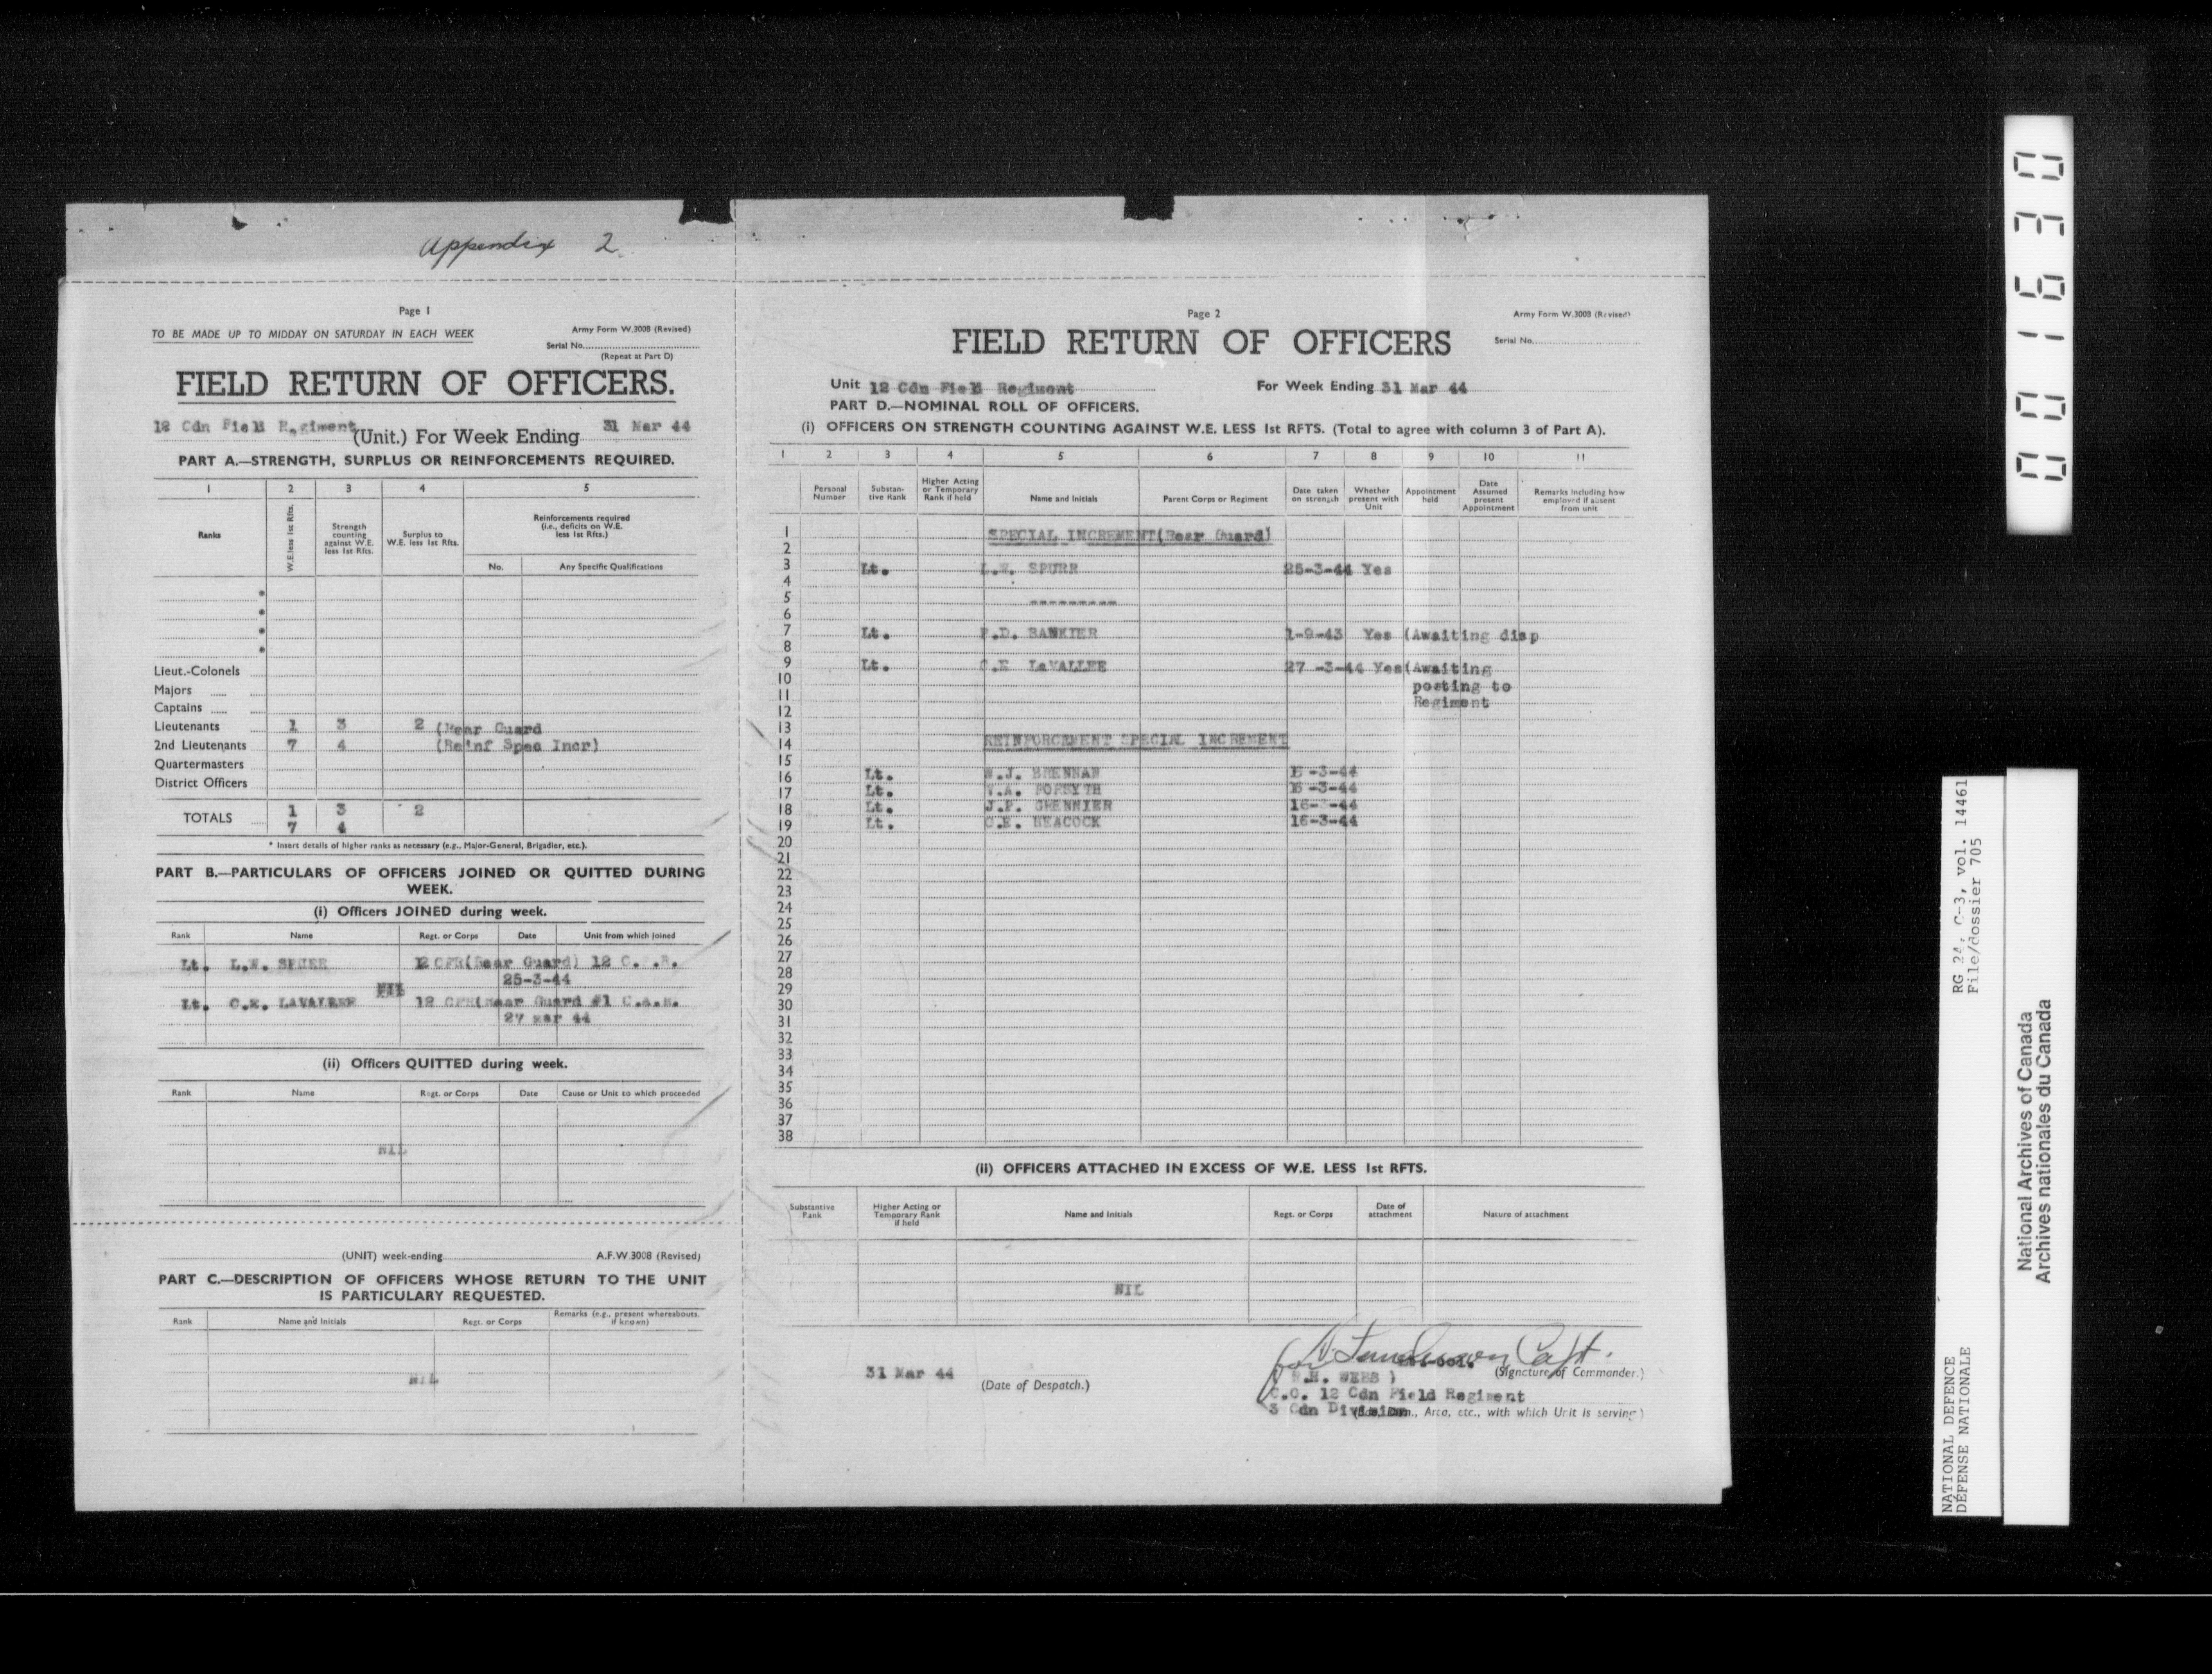 Appendix 2
Page 1
TO BE MADE UP TO MIDDAY ON SATURDAY IN EACH WEEK
Army Form W.3008 (Revised)
Serial No.
(Repeat at Part D)
FIELD RETURN OF OFFICERS.
12 Cdn Field Regiment (Unit.) For Week Ending 31 Mar 44
PART A.—STRENGTH, SURPLUS OR REINFORCEMENTS REQUIRED.
1 2 3 4 5
Ranks
W.E. less 1st Rfts.
Strength counting against W.E. less 1st Rfts.
Surplus to W.E. less 1st Rfts.
Reinforcements required (i.e., deficits on W.E. less 1st Rfts.)
No. Any Specific Qualifications
Lieut.-Colonels
Majors
Captains
Lieutenants 1 3 2 (Rear Guard
2nd Lieutenants 7 4 (Reinf Spec Incr)
Quartermasters
District Officers
TOTALS 1 3 2
7 4
* Insert details of higher ranks as necessary (e.g., Major-General, Brigadier, etc.).
PART B.—PARTICULARS OF OFFICERS JOINED OR QUITTED DURING
WEEK.
(i) Officers JOINED during week.
Rank Name Regt. or Corps Date Unit from which joined
Lt. L.W. SPURR 12 CFR(Rear Guard) 12 C. .R.
25-3-44
NIL
Lt. C.E. LAVALLEE 12 CFR(Rear Guard #1 C.A.R.
27 Mar 44
(ii) Officers QUITTED during week.
Rank Name Regt. or Corps Date Cause or Unit to which proceeded
NIL
(UNIT) week-ending A.F.W.3008 (Revised)
PART C.—DESCRIPTION OF OFFICERS WHOSE RETURN TO THE UNIT
IS PARTICULARY REQUESTED.
Rank Name and Initials Regt. or Corps Remarks (e.g., present whereabouts, if known)
NIL
Page 2
Army Form W.3008 (Revised)
FIELD RETURN OF OFFICERS
Serial No.
Unit 12 Cdn Field Regiment For Week Ending 31 Mar 44
PART D.—NOMINAL ROLL OF OFFICERS.
(i) OFFICERS ON STRENGTH COUNTING AGAINST W.E. LESS 1st RFTS. (Total to agree with column 3 of Part A).
1 2 3 4 5 6 7 8 9 10 11
Personal Number
Substantive Rank
Higher Acting or Temporary Rank if held
Name and Initials
Parent Corps or Regiment
Date taken on strength
Whether present with Unit
Appointment held
Date Assumed present Appointment
Remarks including how employed if absent from unit
1 SPECIAL INCREMENT(Rear Guard)
2
3 Lt. L.W. SPURR 25-3-44 Yes
4
5 ---------
6
7 Lt. .D. BANKIER 1-9-43 Yes (Awaiting disp
8
9 Lt. C.E LaVALLEE 27 -3-44 Yes(Awaiting
10 posting to
11 Regiment
12
13
14 REINFORCEMENT SPECIAL INCREMENT
15
16 Lt. W.J. BRENNAN -3-44
17 Lt. .A. FORSYTH 16 -3-44
18 Lt. J.P. GRENNIER 16- -44
19 Lt. C.E. NEACOCK 16-3-44
20
21
22
23
24
25
26
27
28
29
30
31
32
33
34
35
36
37
38
(ii) OFFICERS ATTACHED IN EXCESS OF W.E. LESS 1st RFTS.
Substantive Rank
Higher Acting or Temporary Rank if held
Name and Initials
Regt. or Corps
Date of attachment
Nature of attachment
NIL
for Capt.
31 Mar 44 (Date of Despatch.)
(Signature of Commander.)
( .H. WEBB )
O.C. 12 Cdn Field Regiment
3 Cdn Division
Area, etc., with which Unit is serving)
001630
RG 24, C-3, vol. 14461
File/dossier 705
NATIONAL DEFENCE
DÉFENSE NATIONALE
National Archives of Canada
Archives nationales du Canada